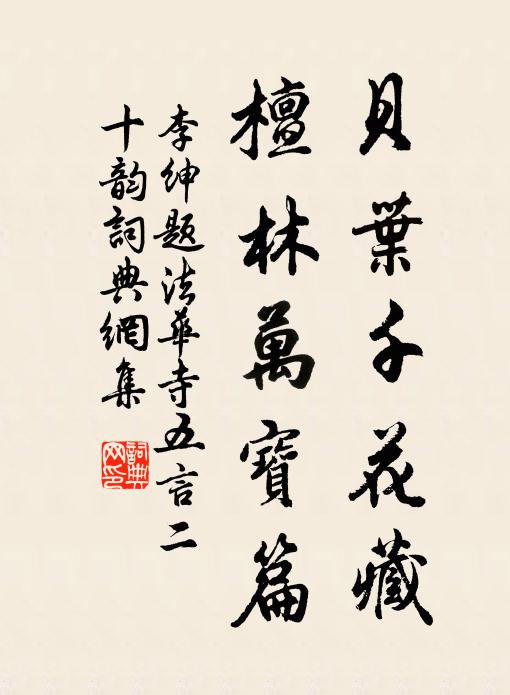 貝葉千花藏
檀林萬寶篇
李紳題法華寺五言二
十韵詞典網集
詞典網印